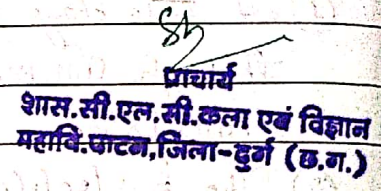 प्राचार्य
शास.सी.एल.सी.कला एवं विज्ञान
महावि.पाटन,जिला-दुर्ग (छ.ग.)